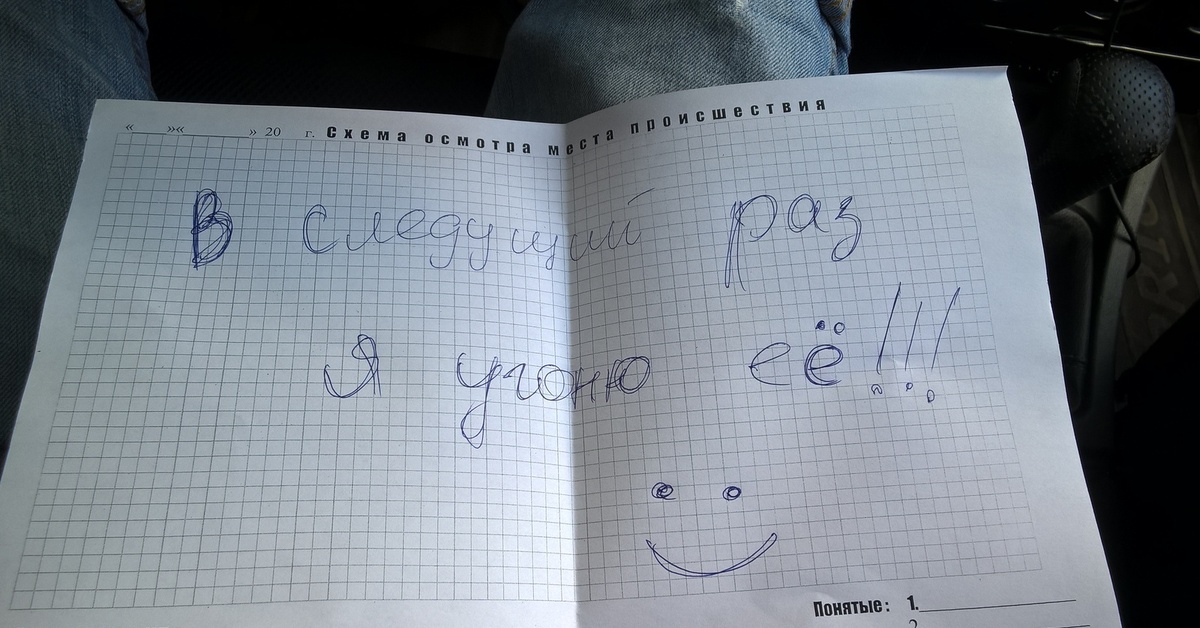 « » « » 20 г. Схема осмотра места происшествия
В следущий раз
Я угоню её!!!
Понятые: 1.
2